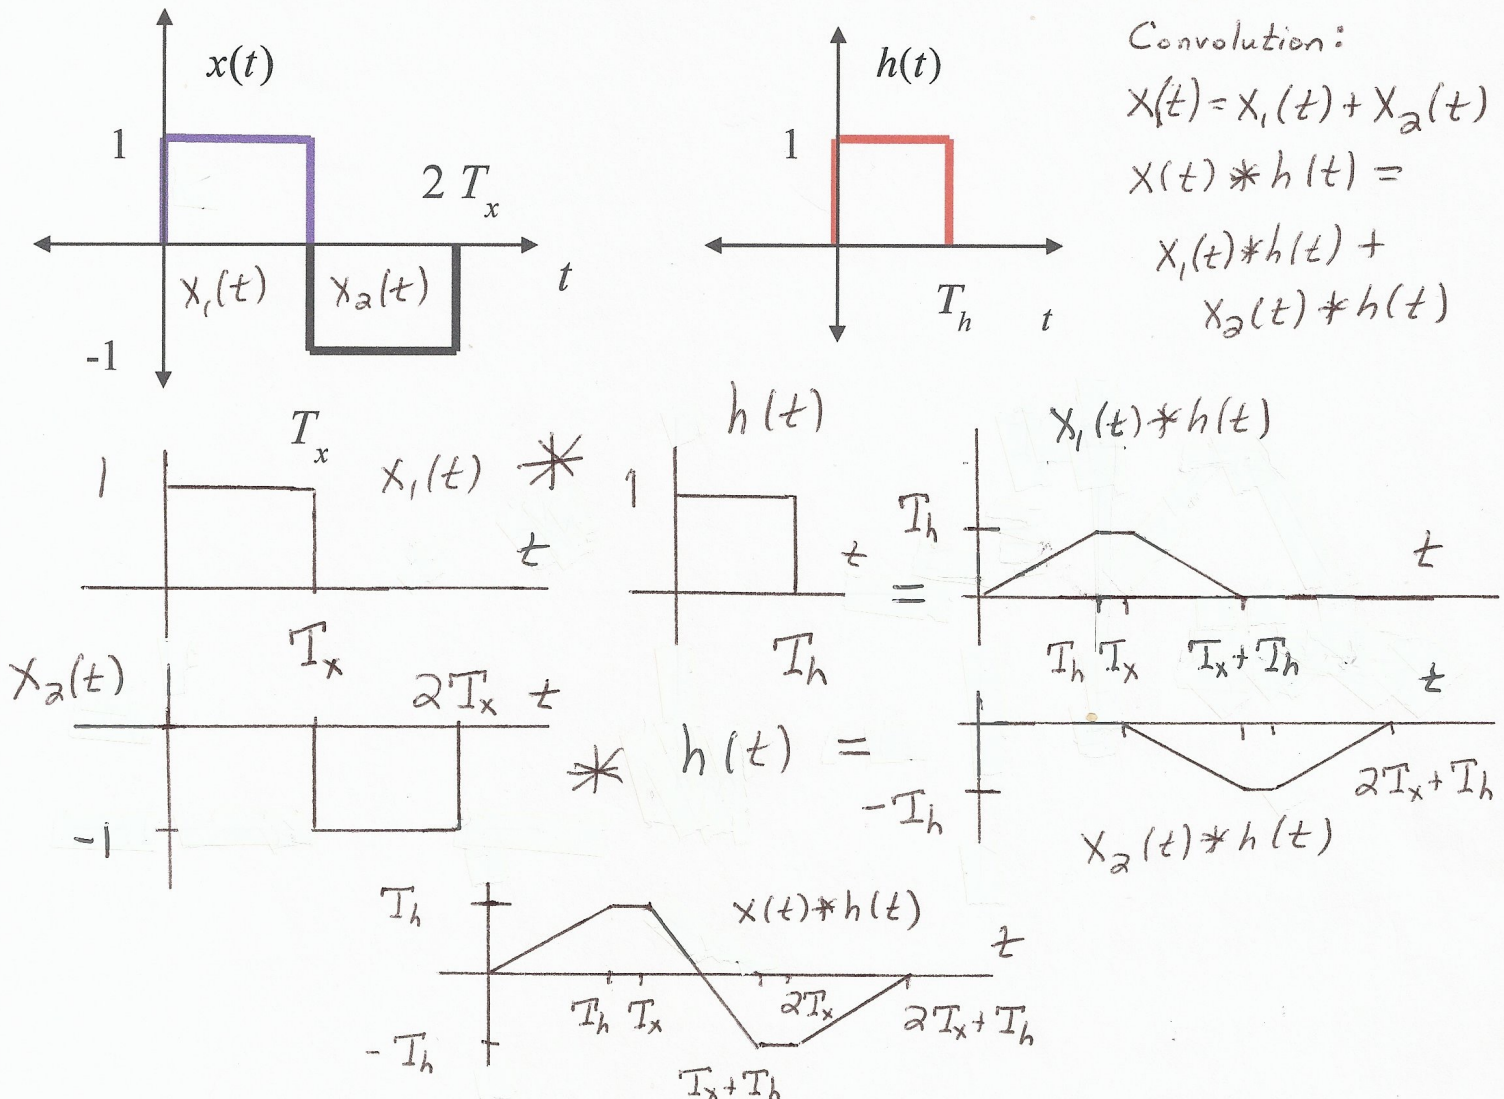 x(t)
1
2 T_x
x₁(t)
x₂(t)
t
-1
T_x
h(t)
1
T_h
t
Convolution:
x(t) = x₁(t) + x₂(t)
x(t) * h(t) =
x₁(t) * h(t) +
x₂(t) * h(t)
1
x₁(t) *
t
T_x
h(t)
1
t
T_h
=
x₁(t) * h(t)
T_h
t
T_h T_x T_x + T_h
x₂(t)
2T_x t
-1
* h(t) =
t
-T_h
2T_x + T_h
x₂(t) * h(t)
T_h
x(t) * h(t)
t
T_h T_x 2T_x 2T_x + T_h
-T_h
T_x + T_h